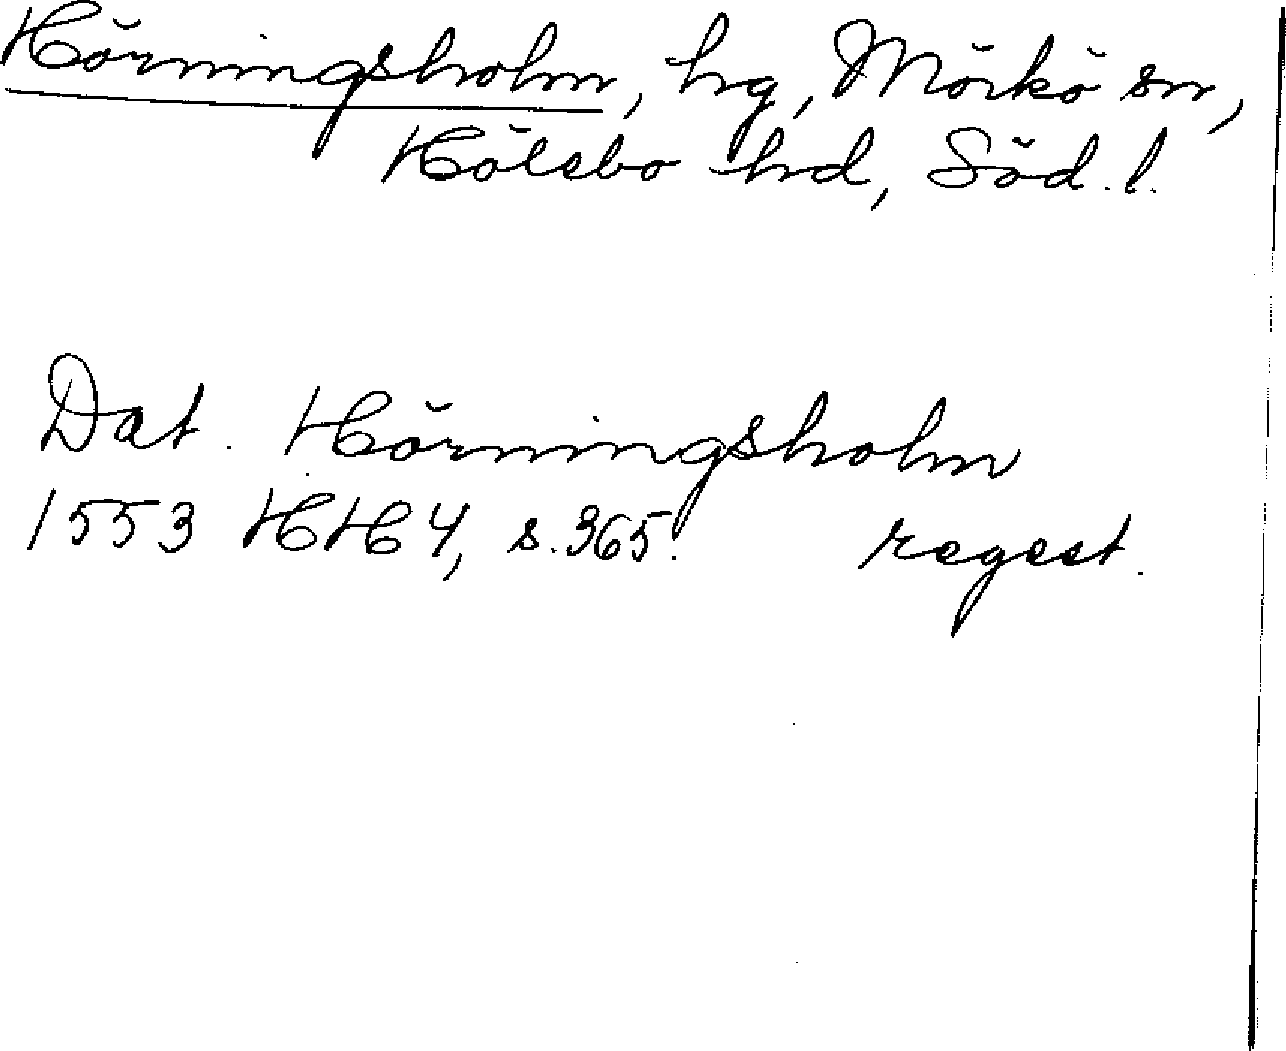 Hörningsholm, hg, Mörkö sn,
Hölebo hd, Söd. l.
Dat. Hörningsholm
1553 HH 4, s. 365. regest.